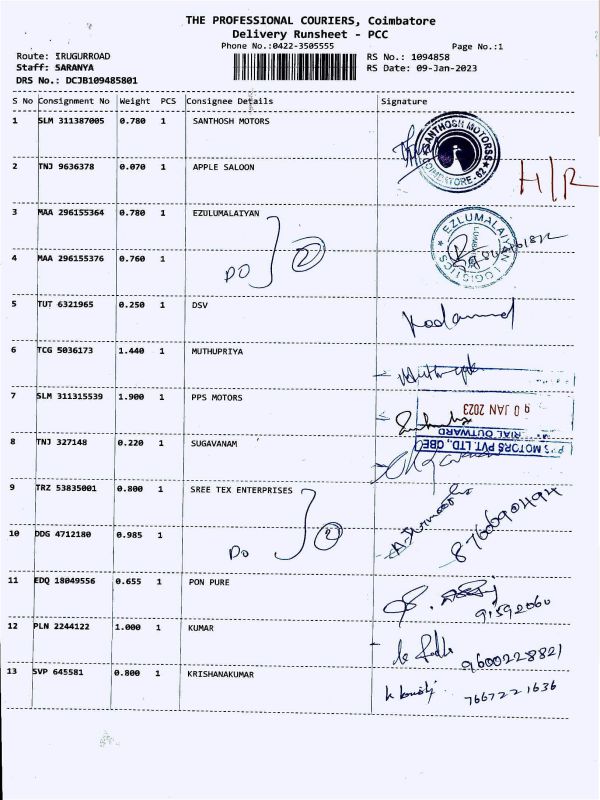 THE PROFESSIONAL COURIERS, Coimbatore
Delivery Runsheet - PCC
Phone No.:0422-3505555 Page No.:1
Route: IRUGURROAD RS No.: 1094858
Staff: SARANYA RS Date: 09-Jan-2023
DRS No.: DCJB109485801
S No Consignment No Weight PCS Consignee Details Signature
1 SLM 311387005 0.780 1 SANTHOSH MOTORS
SANTHOSH MOTORSS COIMBATORE-62
2 TNJ 9636378 0.070 1 APPLE SALOON H/R
3 MAA 296155364 0.780 1 EZULUMALAIYAN
EZLUMALAIYAN LOGISTICS
4 MAA 296155376 0.760 1 DO 2
5 TUT 6321965 0.250 1 DSV
6 TCG 5036173 1.440 1 MUTHUPRIYA
7 SLM 311315539 1.900 1 PPS MOTORS
0 JAN 2023
8 TNJ 327148 0.220 1 SUGAVANAM
MOTORS PVT. LTD., CBE
RIAL OUTWARD
9 TRZ 53835001 0.800 1 SREE TEX ENTERPRISES
10 DDG 4712180 0.985 1 DO 2 8760690494
11 EDQ 18049556 0.655 1 PON PURE
12 PLN 2244122 1.000 1 KUMAR 9600228821
13 SVP 645581 0.800 1 KRISHANAKUMAR 7667221636